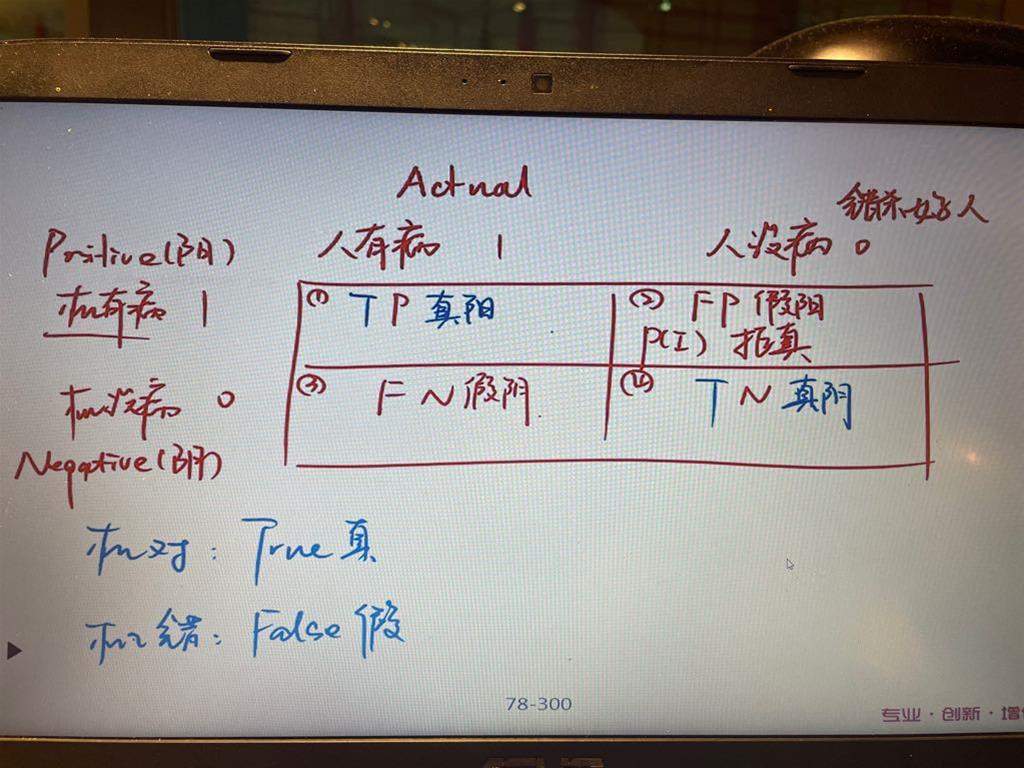 Actual
错杀好人
Positive(阳) 人有病 1 人没病 0
机有病 1 ① TP 真阳 ② FP 假阳
P(I) 拒真
机没病 0 ③ FN 假阴 ④ TN 真阴
Negative(阴)
机对：True 真
机错：False 假
78-300
专业·创新·增